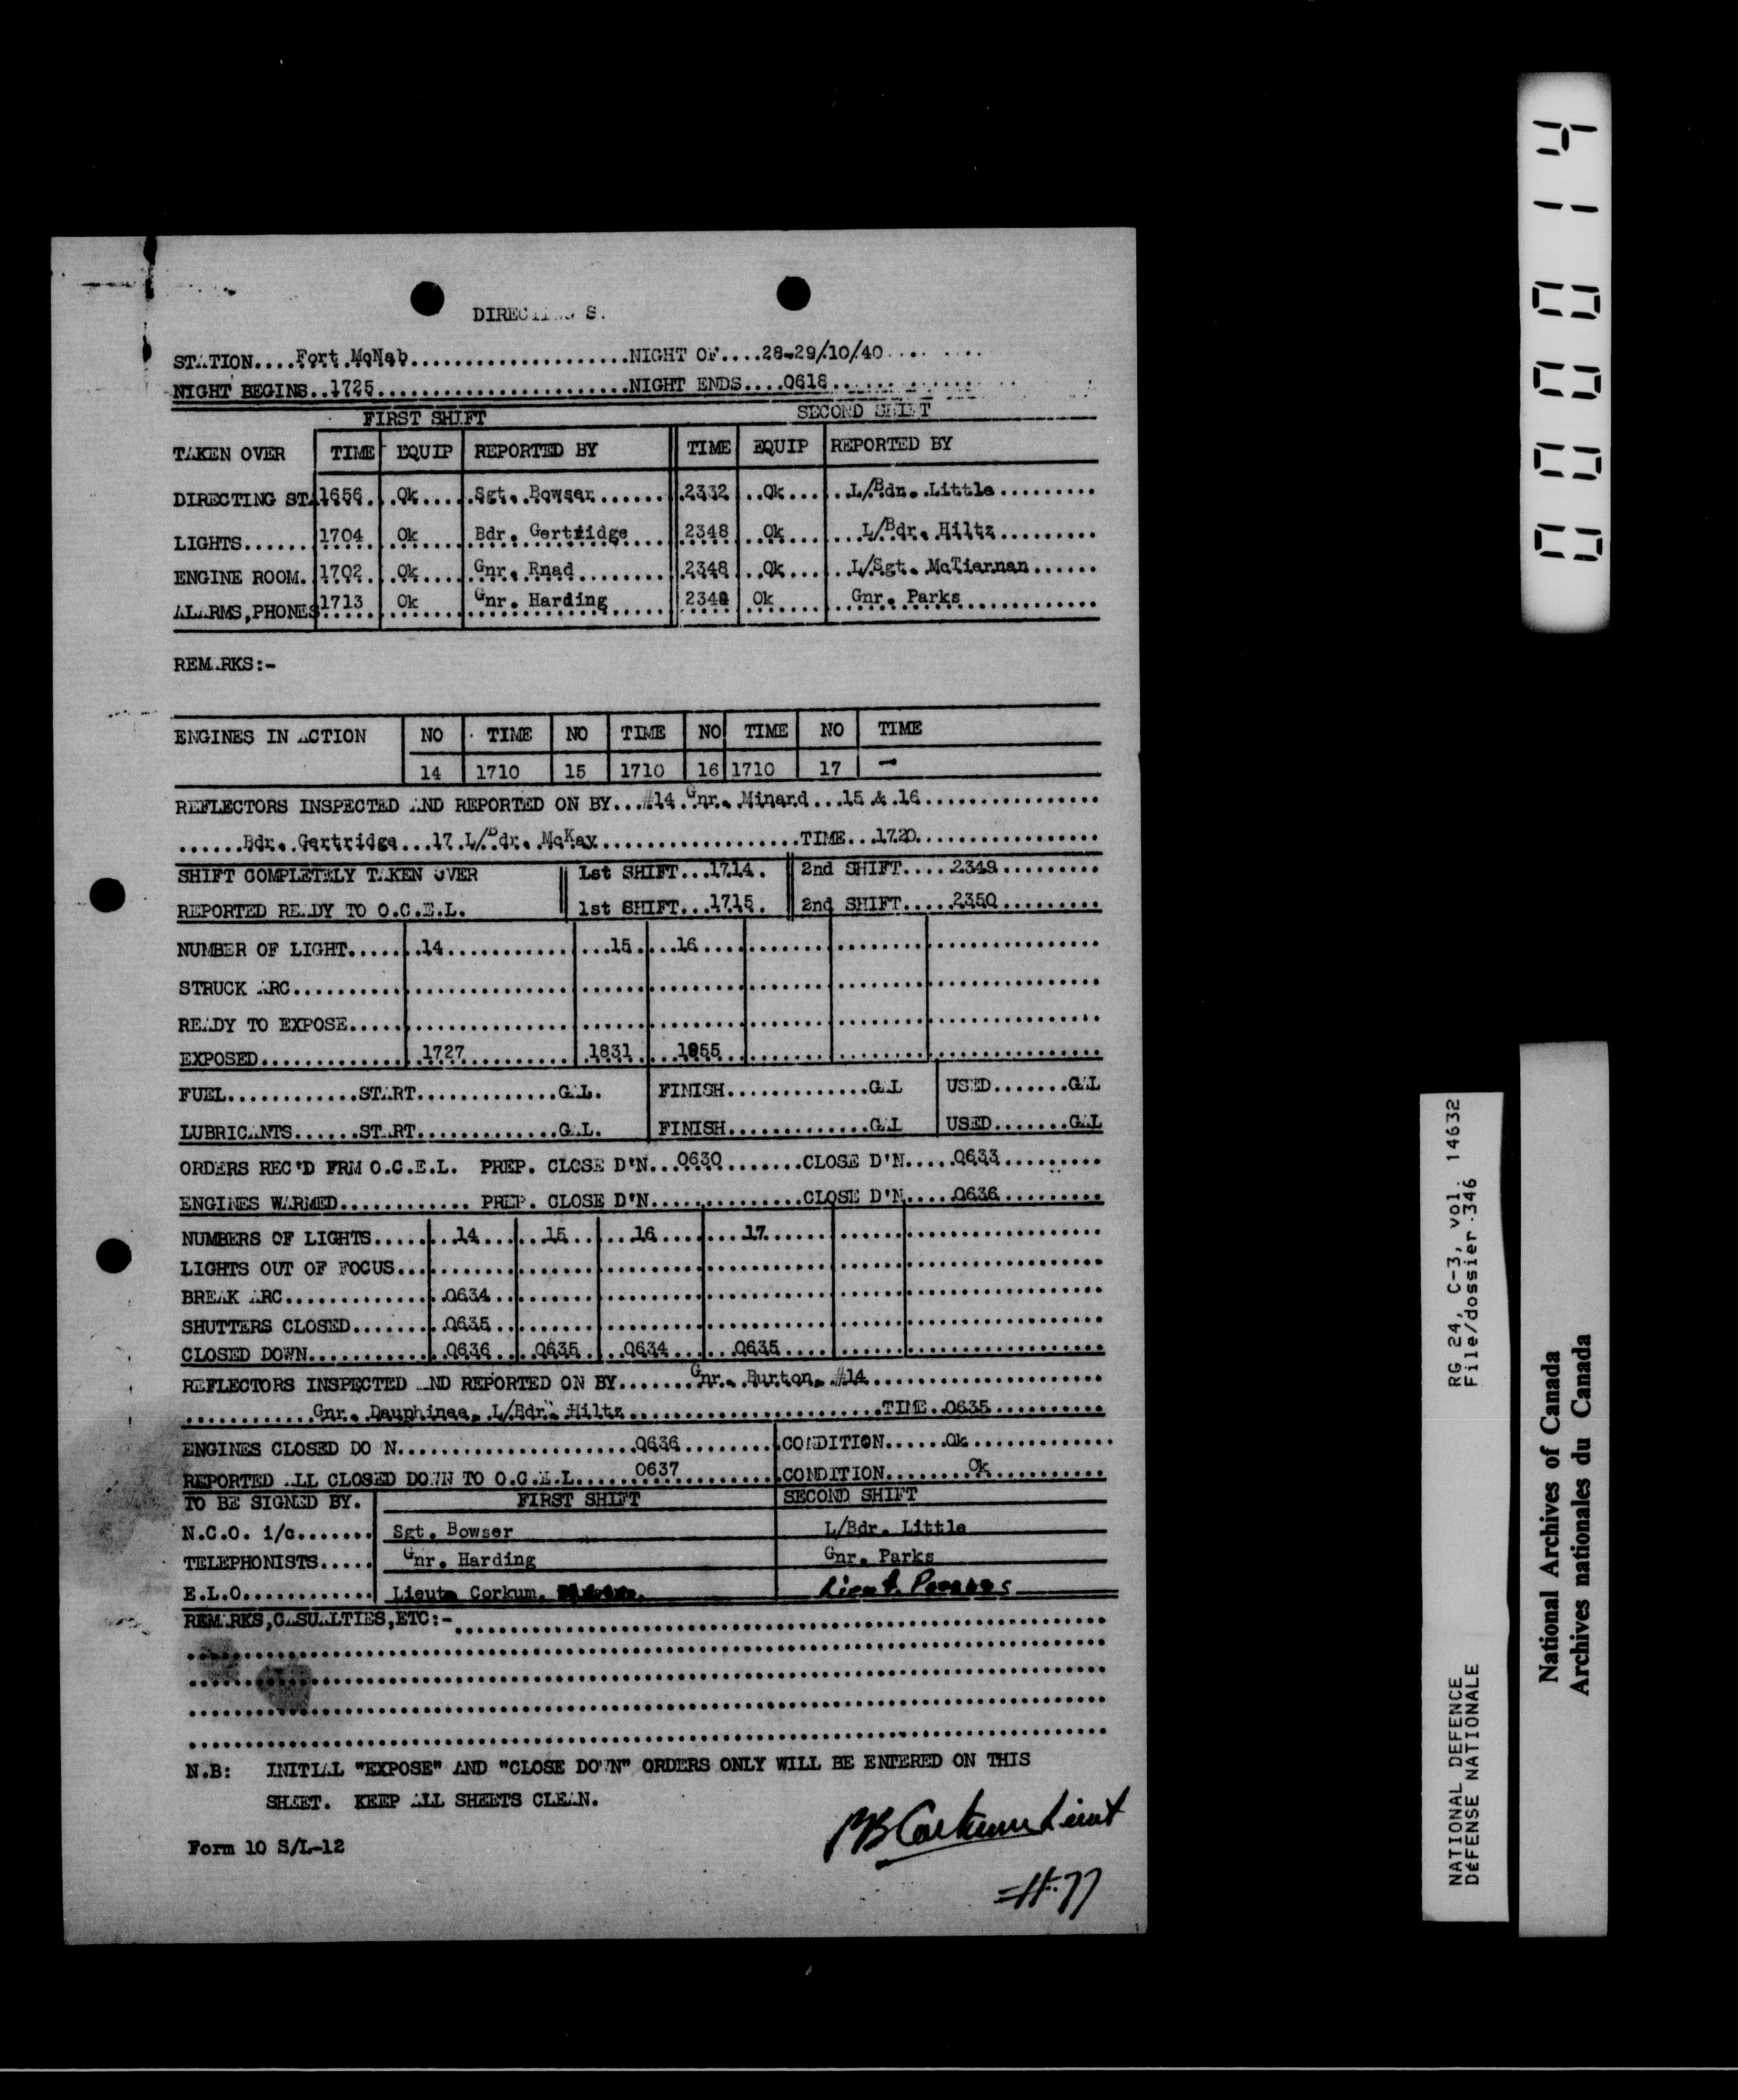 DIRECTING S.
STATION....Fort McNab.....................NIGHT OF....28-29/10/40.... ....
NIGHT BEGINS..1725........................NIGHT ENDS....0618...............
FIRST SHIFT SECOND SHIFT
TAKEN OVER TIME EQUIP REPORTED BY TIME EQUIP REPORTED BY
DIRECTING STA 1656 Ok Sgt. Bowser 2332 Ok L/Bdr. Little
LIGHTS...... 1704 Ok Bdr. Gertridge 2348 Ok L/Bdr. Hiltz
ENGINE ROOM. 1702 Ok Gnr. Rnad 2348 Ok L/Sgt. McTiernan
ALARMS,PHONES 1713 Ok Gnr. Harding Ok Gnr. Parks
REMARKS:-
ENGINES IN ACTION NO TIME NO TIME NO TIME NO TIME
14 1710 15 1710 16 1710 17 -
REFLECTORS INSPECTED AND REPORTED ON BY...#14.Gnr. Minard...15 & 16.................
......Bdr. Gertridge...17 L/Bdr. McKay...................TIME...1720.................
SHIFT COMPLETELY TAKEN OVER 1st SHIFT...1714. 2nd SHIFT....2349.........
REPORTED READY TO O.C.E.L. 1st SHIFT...1715. 2nd SHIFT.....2350.........
NUMBER OF LIGHT..... 14 15 16
STRUCK ARC..........
READY TO EXPOSE.....
EXPOSED............. 1727 1831 1855
FUEL............START.............GAL. FINISH.............GAL USED.......GAL
LUBRICANTS......START.............GAL. FINISH.............GAL USED.......GAL
ORDERS REC'D FRM O.C.E.L. PREP. CLOSE D'N...0630........CLOSE D'N.....0633.........
ENGINES WARMED............ PREP. CLOSE D'N...............CLOSE D'N.....0636.........
NUMBERS OF LIGHTS..... 14 15 16 17
LIGHTS OUT OF FOCUS...
BREAK ARC............. 0634
SHUTTERS CLOSED....... 0635
CLOSED DOWN........... 0636 0635 0634 0635
REFLECTORS INSPECTED AND REPORTED ON BY.......Gnr. Burton. #14.....................
............Gnr. Dauphinee. L/Bdr. Hiltz.......................TIME..0635..........
ENGINES CLOSED DOWN.....................0636......... CONDITION......Ok.............
REPORTED ALL CLOSED DOWN TO O.C.E.L......0637......... CONDITION........Ok..........
TO BE SIGNED BY. FIRST SHIFT SECOND SHIFT
N.C.O. i/c....... Sgt. Bowser L/Bdr. Little
TELEPHONISTS..... Gnr. Harding Gnr. Parks
E.L.O............ Lieut. Corkum. Lieut.
REMARKS,CASUALTIES,ETC:-
N.B: INITIAL "EXPOSE" AND "CLOSE DOWN" ORDERS ONLY WILL BE ENTERED ON THIS
SHEET. KEEP ALL SHEETS CLEAN.
Corkum Lieut
Form 10 S/L-12
#77
000014
RG 24, C-3, vol. 14632
File/dossier 346
NATIONAL DEFENCE
DÉFENSE NATIONALE
National Archives of Canada
Archives nationales du Canada